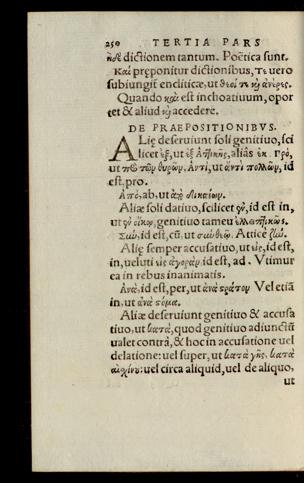 250 TERTIA PARS
ἠδὲ dictionem tantum. Poëtica sunt.
Καὶ præponitur dictionibus, Τε uero
subiungit᷑ encliticæ, ut θεοί τε καὶ ἀνέρες.
Quando καὶ est inchoatiuum, opor
tet & aliud καὶ accedere.
DE PRAEPOSITIONIBVS.
Alię deseruiunt soli genitiuo, sci
licet ἐξ, ut ἐξ Ἀττικῆς, aliâs ἐκ. Πρό,
ut πρὸ τῶν θυρῶν, Ἀντί, ut ἀντὶ πολλῶν, id
est, pro.
Ἀπό, ab, ut ἀπὸ δικαίων.
Aliæ soli datiuo, scilicet ἐν, id est in,
ut ἐν οἴκῳ, genitiuo tamen ἐλλειπτικῶς.
Σιὼ, id est, cū, ut σιὼ θεῷ. Atticè ξιώ.
Alię semper accusatiuo, ut εἰς, id est,
in, ueluti εἰς ἀγορὰν, id est, ad. Vtimur
ea in rebus inanimatis.
Ἀνὰ, id est, per, ut ἀνὰ στρατὸν Vel etiā
in, ut ἀνὰ στόμα.
Aliæ deseruiunt genitiuo & accusa
tiuo, ut κατὰ, quod genitiuo adiunctū
ualet contrà, & hoc in accusatione uel
delatione: uel super, ut κατὰ γῆς, κατὰ
αἰσχίνου: uel circa aliquid, uel de aliquo,
ut